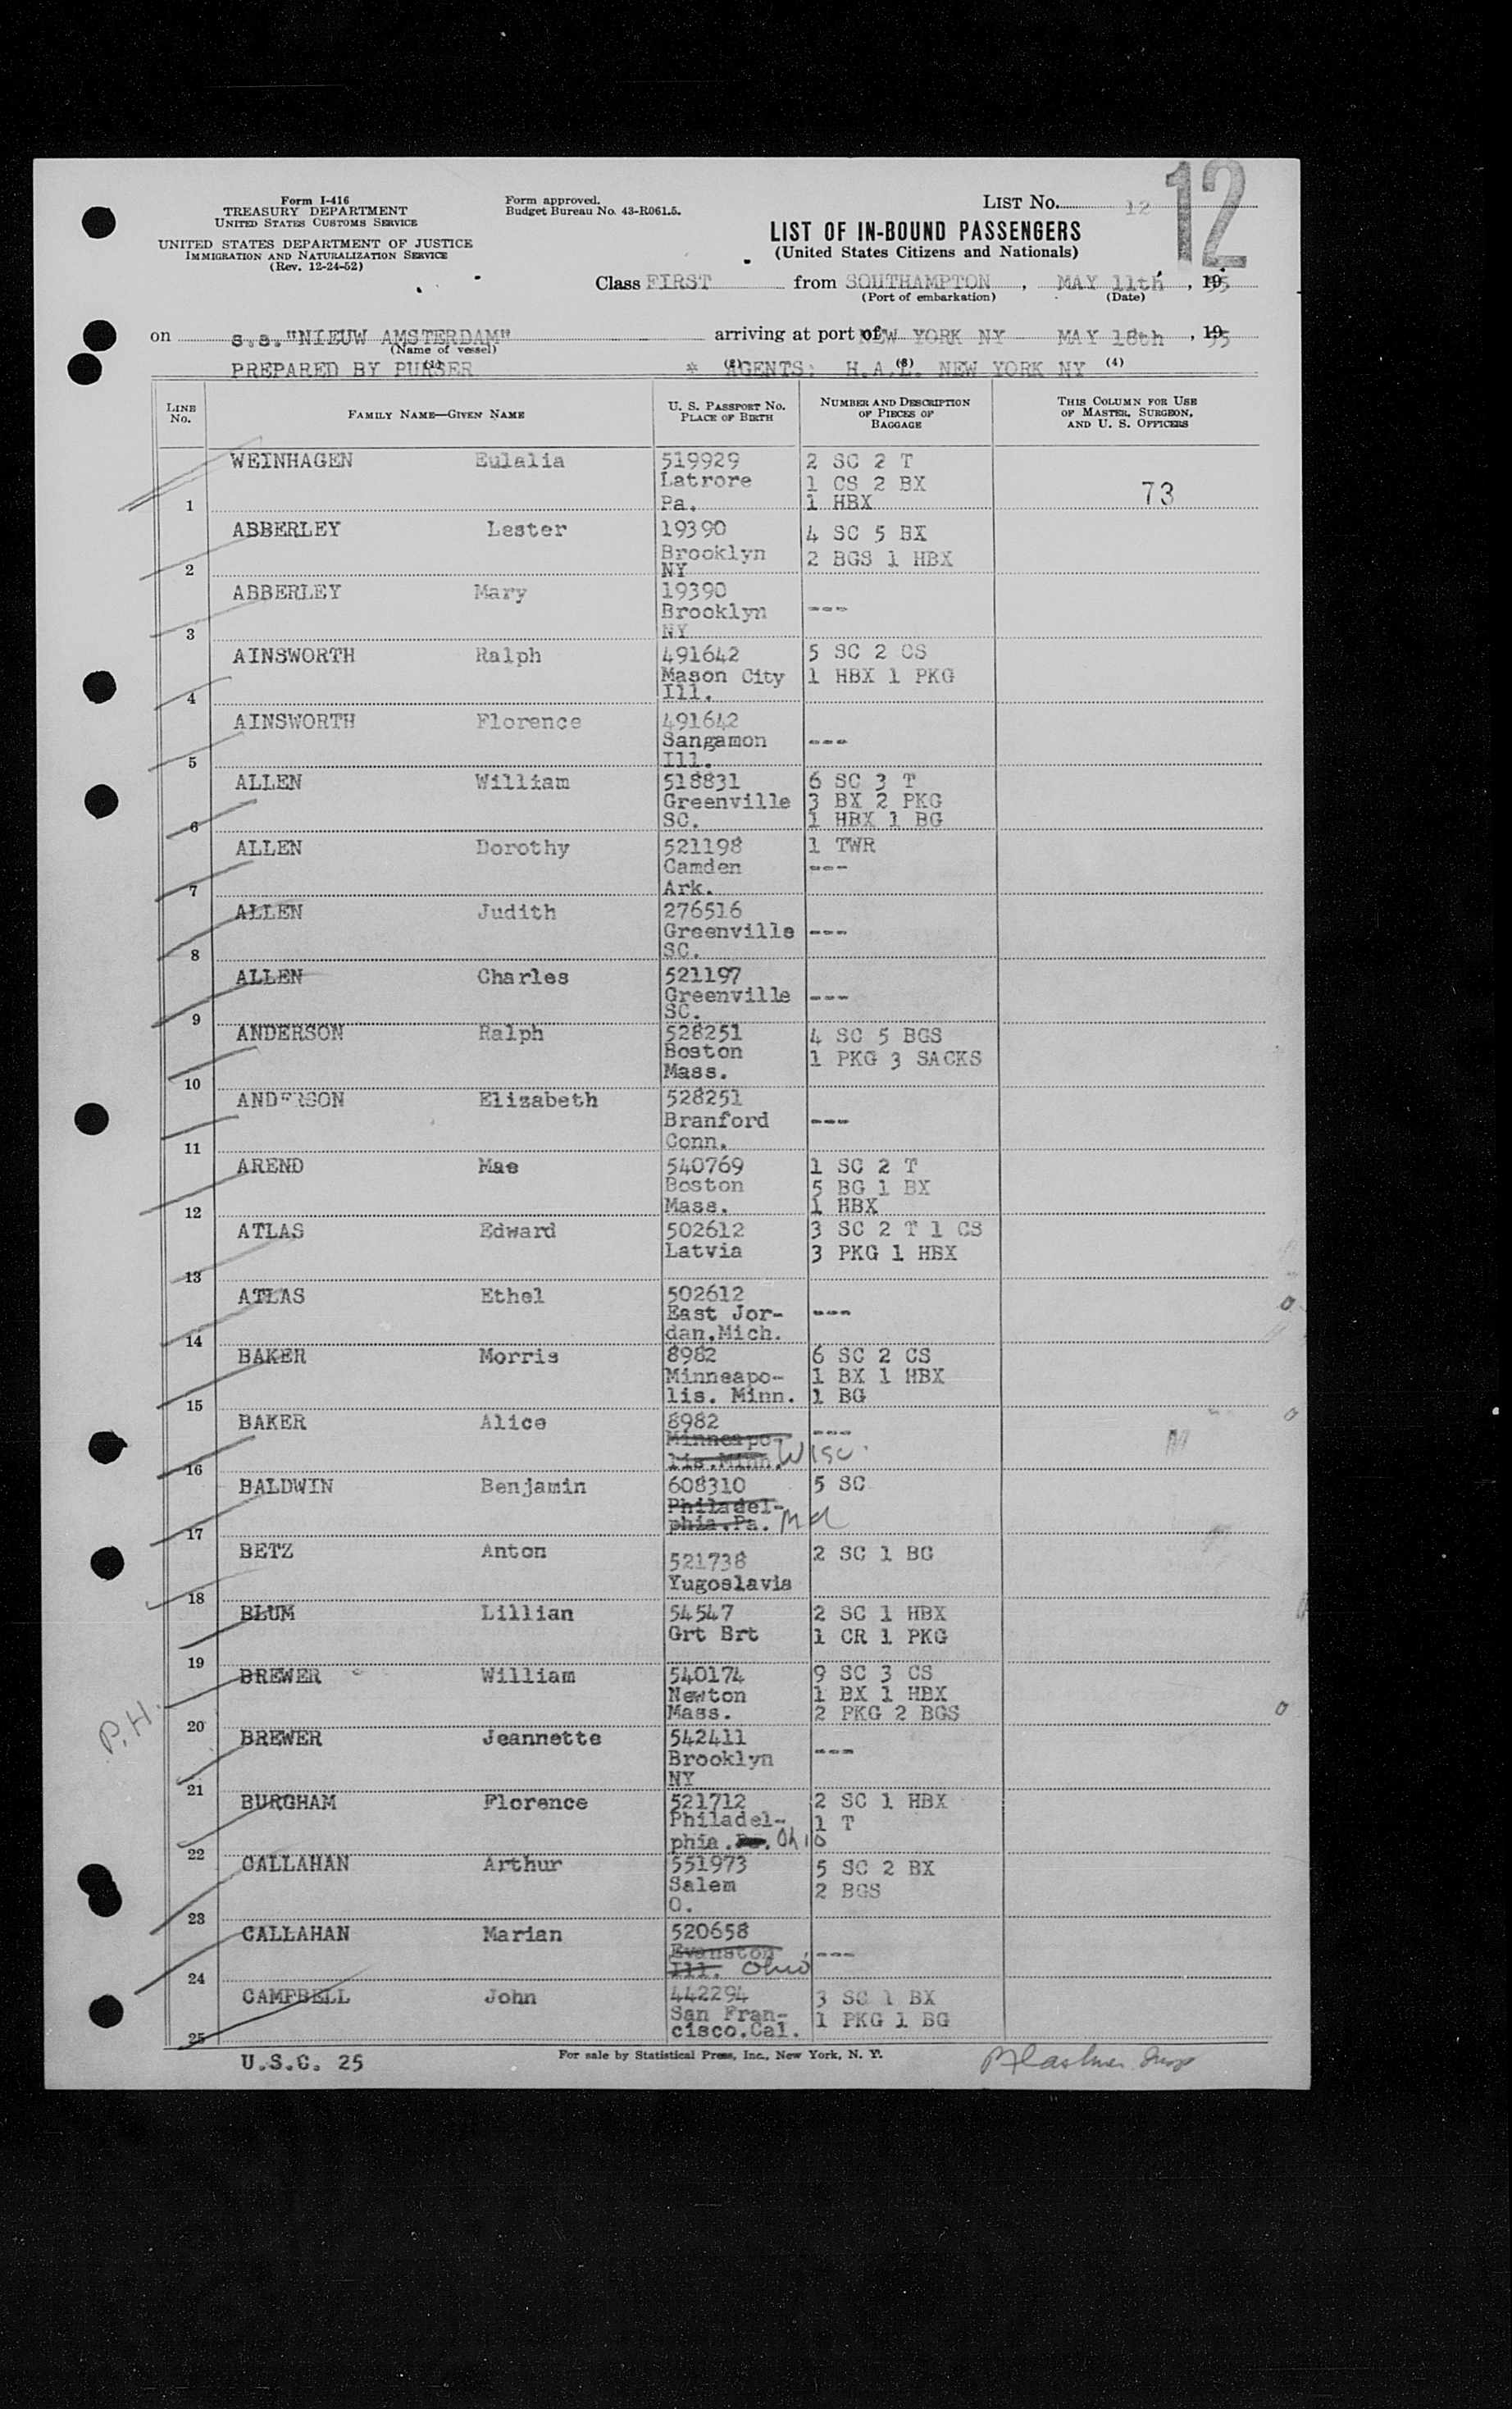 12
Form I-416
TREASURY DEPARTMENT
UNITED STATES CUSTOMS SERVICE
UNITED STATES DEPARTMENT OF JUSTICE
IMMIGRATION AND NATURALIZATION SERVICE
(Rev. 12-24-52)
Form approved.
Budget Bureau No. 43-R061.5.
LIST No. 12
LIST OF IN-BOUND PASSENGERS
(United States Citizens and Nationals)
Class FIRST from SOUTHAMPTON, MAY 11th, 1955
(Port of embarkation) (Date)
on s.s."NIEUW AMSTERDAM" arriving at port of NEW YORK NY MAY 18th, 1955
(Name of vessel)
PREPARED BY PURSER * AGENTS: H.A.L. NEW YORK NY
(1) (2) (3) (4)
LINE No. FAMILY NAME—GIVEN NAME U. S. PASSPORT NO. PLACE OF BIRTH NUMBER AND DESCRIPTION OF PIECES OF BAGGAGE THIS COLUMN FOR USE OF MASTER, SURGEON, AND U. S. OFFICERS
WEINHAGEN Eulalia 519929 2 SC 2 T
Latrore 1 CS 2 BX
1 Pa. 1 HBX 73
ABBERLEY Lester 19390 4 SC 5 BX
Brooklyn 2 BGS 1 HBX
2 NY
ABBERLEY Mary 19390
Brooklyn ---
3 NY
AINSWORTH Ralph 491642 5 SC 2 CS
Mason City 1 HBX 1 PKG
4 Ill.
AINSWORTH Florence 491642
Sangamon ---
5 Ill.
ALLEN William 518831 6 SC 3 T
Greenville 3 BX 2 PKG
6 SC. 1 HBX 1 BG
ALLEN Dorothy 521198 1 TWR
Camden ---
7 Ark.
ALLEN Judith 276516
Greenville ---
8 SC.
ALLEN Charles 521197
Greenville ---
9 SC.
ANDERSON Ralph 528251 4 SC 5 BGS
Boston 1 PKG 3 SACKS
10 Mass.
ANDERSON Elizabeth 528251
Branford ---
11 Conn.
AREND Mae 540769 1 SC 2 T
Boston 5 BG 1 BX
12 Mass. 1 HBX
ATLAS Edward 502612 3 SC 2 T 1 CS
Latvia 3 PKG 1 HBX
13
ATLAS Ethel 502612
East Jor- ---
14 dan.Mich.
BAKER Morris 8982 6 SC 2 CS
Minneapo- 1 BX 1 HBX
15 lis. Minn. 1 BG
BAKER Alice 8982
Minneapo- ---
16 lis.Minn. Wisc.
BALDWIN Benjamin 608310 5 SC
Philadel-
17 phia.Pa. Md
BETZ Anton 521738 2 SC 1 BG
Yugoslavia
18
BLUM Lillian 54547 2 SC 1 HBX
Grt Brt 1 CR 1 PKG
19
BREWER William 540174 9 SC 3 CS
Newton 1 BX 1 HBX
P.H. 20 Mass. 2 PKG 2 BGS
BREWER Jeannette 542411
Brooklyn ---
21 NY
BURGHAM Florence 521712 2 SC 1 HBX
Philadel- 1 T
22 phia. Ohio
CALLAHAN Arthur 551973 5 SC 2 BX
Salem 2 BGS
23 O.
CALLAHAN Marian 520658
Evanston ---
24 Ill. Ohio
CAMPBELL John 442294 3 SC 1 BX
San Fran- 1 PKG 1 BG
25 cisco.Cal.
U.S.C. 25 For sale by Statistical Press, Inc., New York, N. Y.